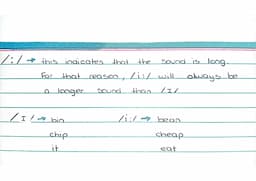 /:/ → this indicates that the sound is long.
For that reason, /i:/ will always be
a longer sound than /I/
/I/ → bin /i:/ → bean
chip cheap
it eat